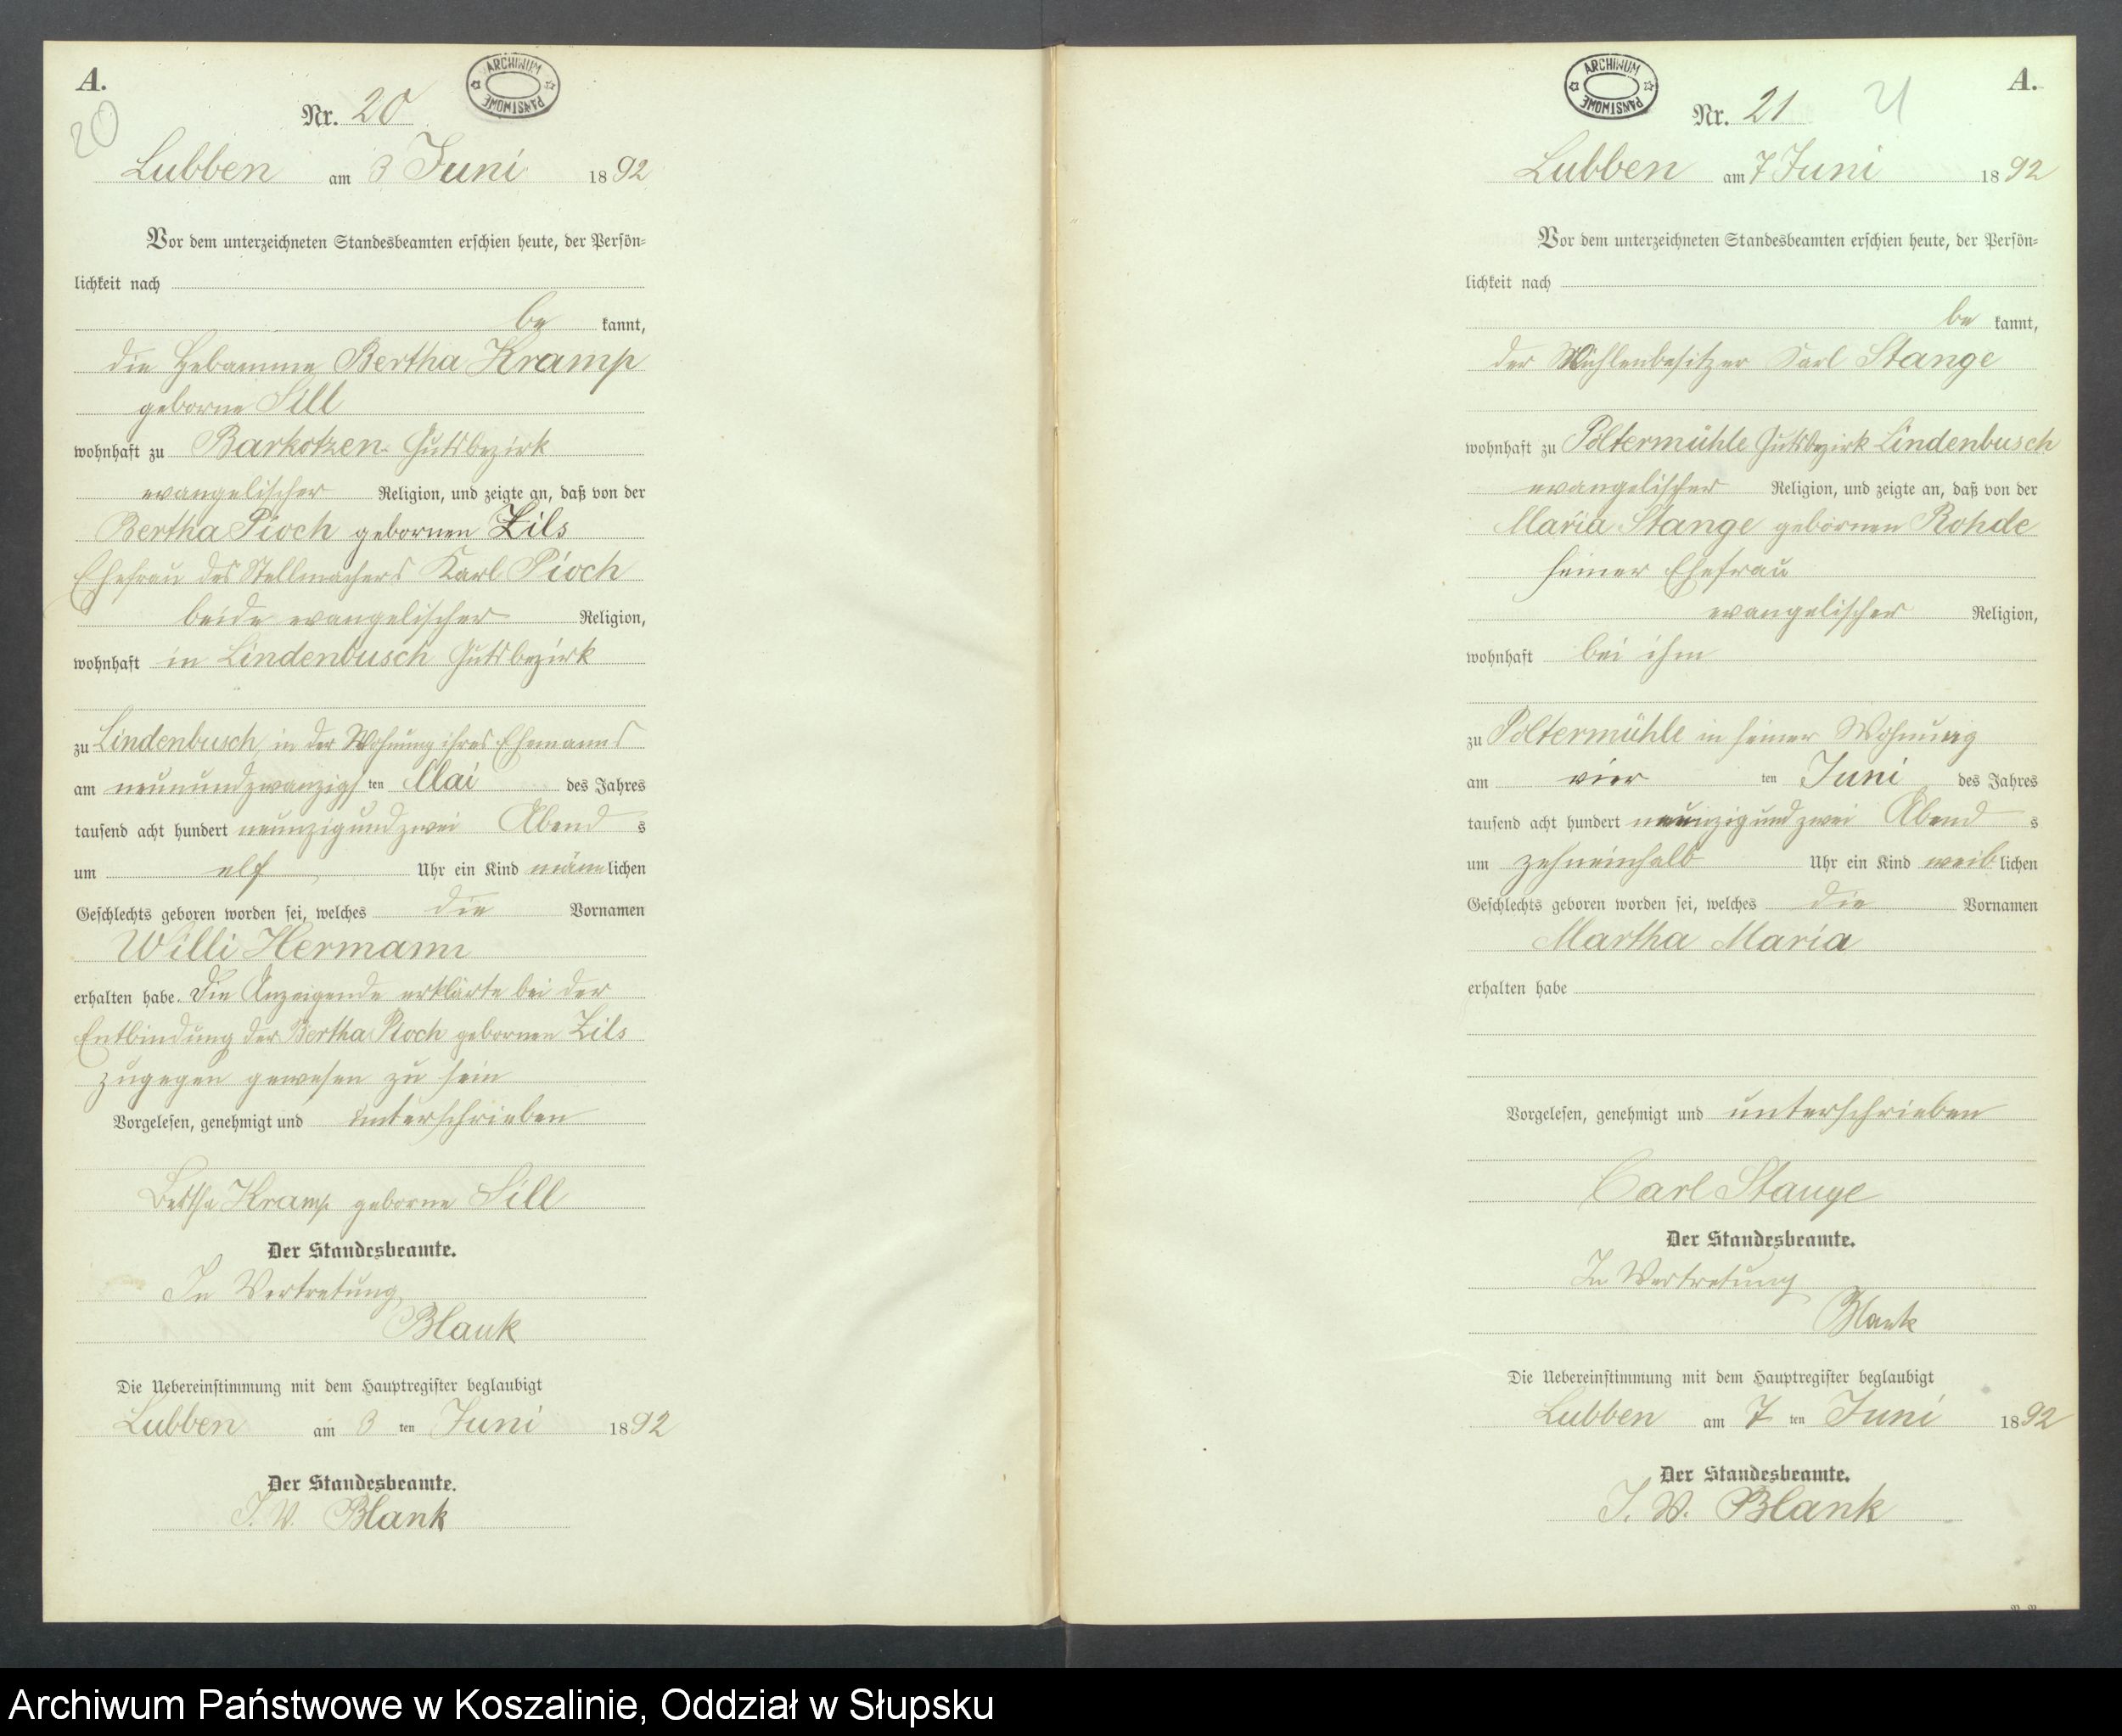 A.
20
ARCHIWUM PAŃSTWOWE
Nr. 20
Lubben am 3 Juni 1892
Vor dem unterzeichneten Standesbeamten erschien heute, der Persön=
lichkeit nach
be kannt,
die Hebamme Bertha Kramp
geborne Sill
wohnhaft zu Barkotzen Gutsbezirk
evangelischer Religion, und zeigte an, daß von der
Bertha Pioch gebornen Zils
Ehefrau des Stellmachers Karl Pioch
beide evangelischer Religion,
wohnhaft in Lindenbusch Gutsbezirk
zu Lindenbusch, in der Wohnung ihres Ehemanns
am neunundzwanzigs ten Mai des Jahres
tausend acht hundert neunzig und zwei Abend s
um elf Uhr ein Kind männ lichen
Geschlechts geboren worden sei, welches die Vornamen
Willi Hermann
erhalten habe. Die Anzeigende erklärte bei der
Entbindung der Bertha Pioch gebornen Zils
zugegen gewesen zu sein
Vorgelesen, genehmigt und unterschrieben
Bertha Kramp geborne Sill
Der Standesbeamte.
In Vertretung
Blank
Die Uebereinstimmung mit dem Hauptregister beglaubigt
Lubben am 3 ten Juni 1892
Der Standesbeamte.
I. V. Blank
A.
21
ARCHIWUM PAŃSTWOWE
Nr. 21
Lubben am 7 Juni 1892
Vor dem unterzeichneten Standesbeamten erschien heute, der Persön=
lichkeit nach
be kannt,
der Mühlenbesitzer Karl Stange
wohnhaft zu Poltermühle Gutsbezirk Lindenbusch
evangelischer Religion, und zeigte an, daß von der
Maria Stange gebornen Rohde
seiner Ehefrau
evangelischer Religion,
wohnhaft bei ihm
zu Poltermühle in seiner Wohnung
am vier ten Juni des Jahres
tausend acht hundert neunzig und zwei Abend s
um zehneinhalb Uhr ein Kind weib lichen
Geschlechts geboren worden sei, welches die Vornamen
Martha Maria
erhalten habe
Vorgelesen, genehmigt und unterschrieben
Carl Stange
Der Standesbeamte.
In Vertretung
Blank
Die Uebereinstimmung mit dem Hauptregister beglaubigt
Lubben am 7 ten Juni 1892
Der Standesbeamte.
I. V. Blank
Archiwum Państwowe w Koszalinie, Oddział w Słupsku